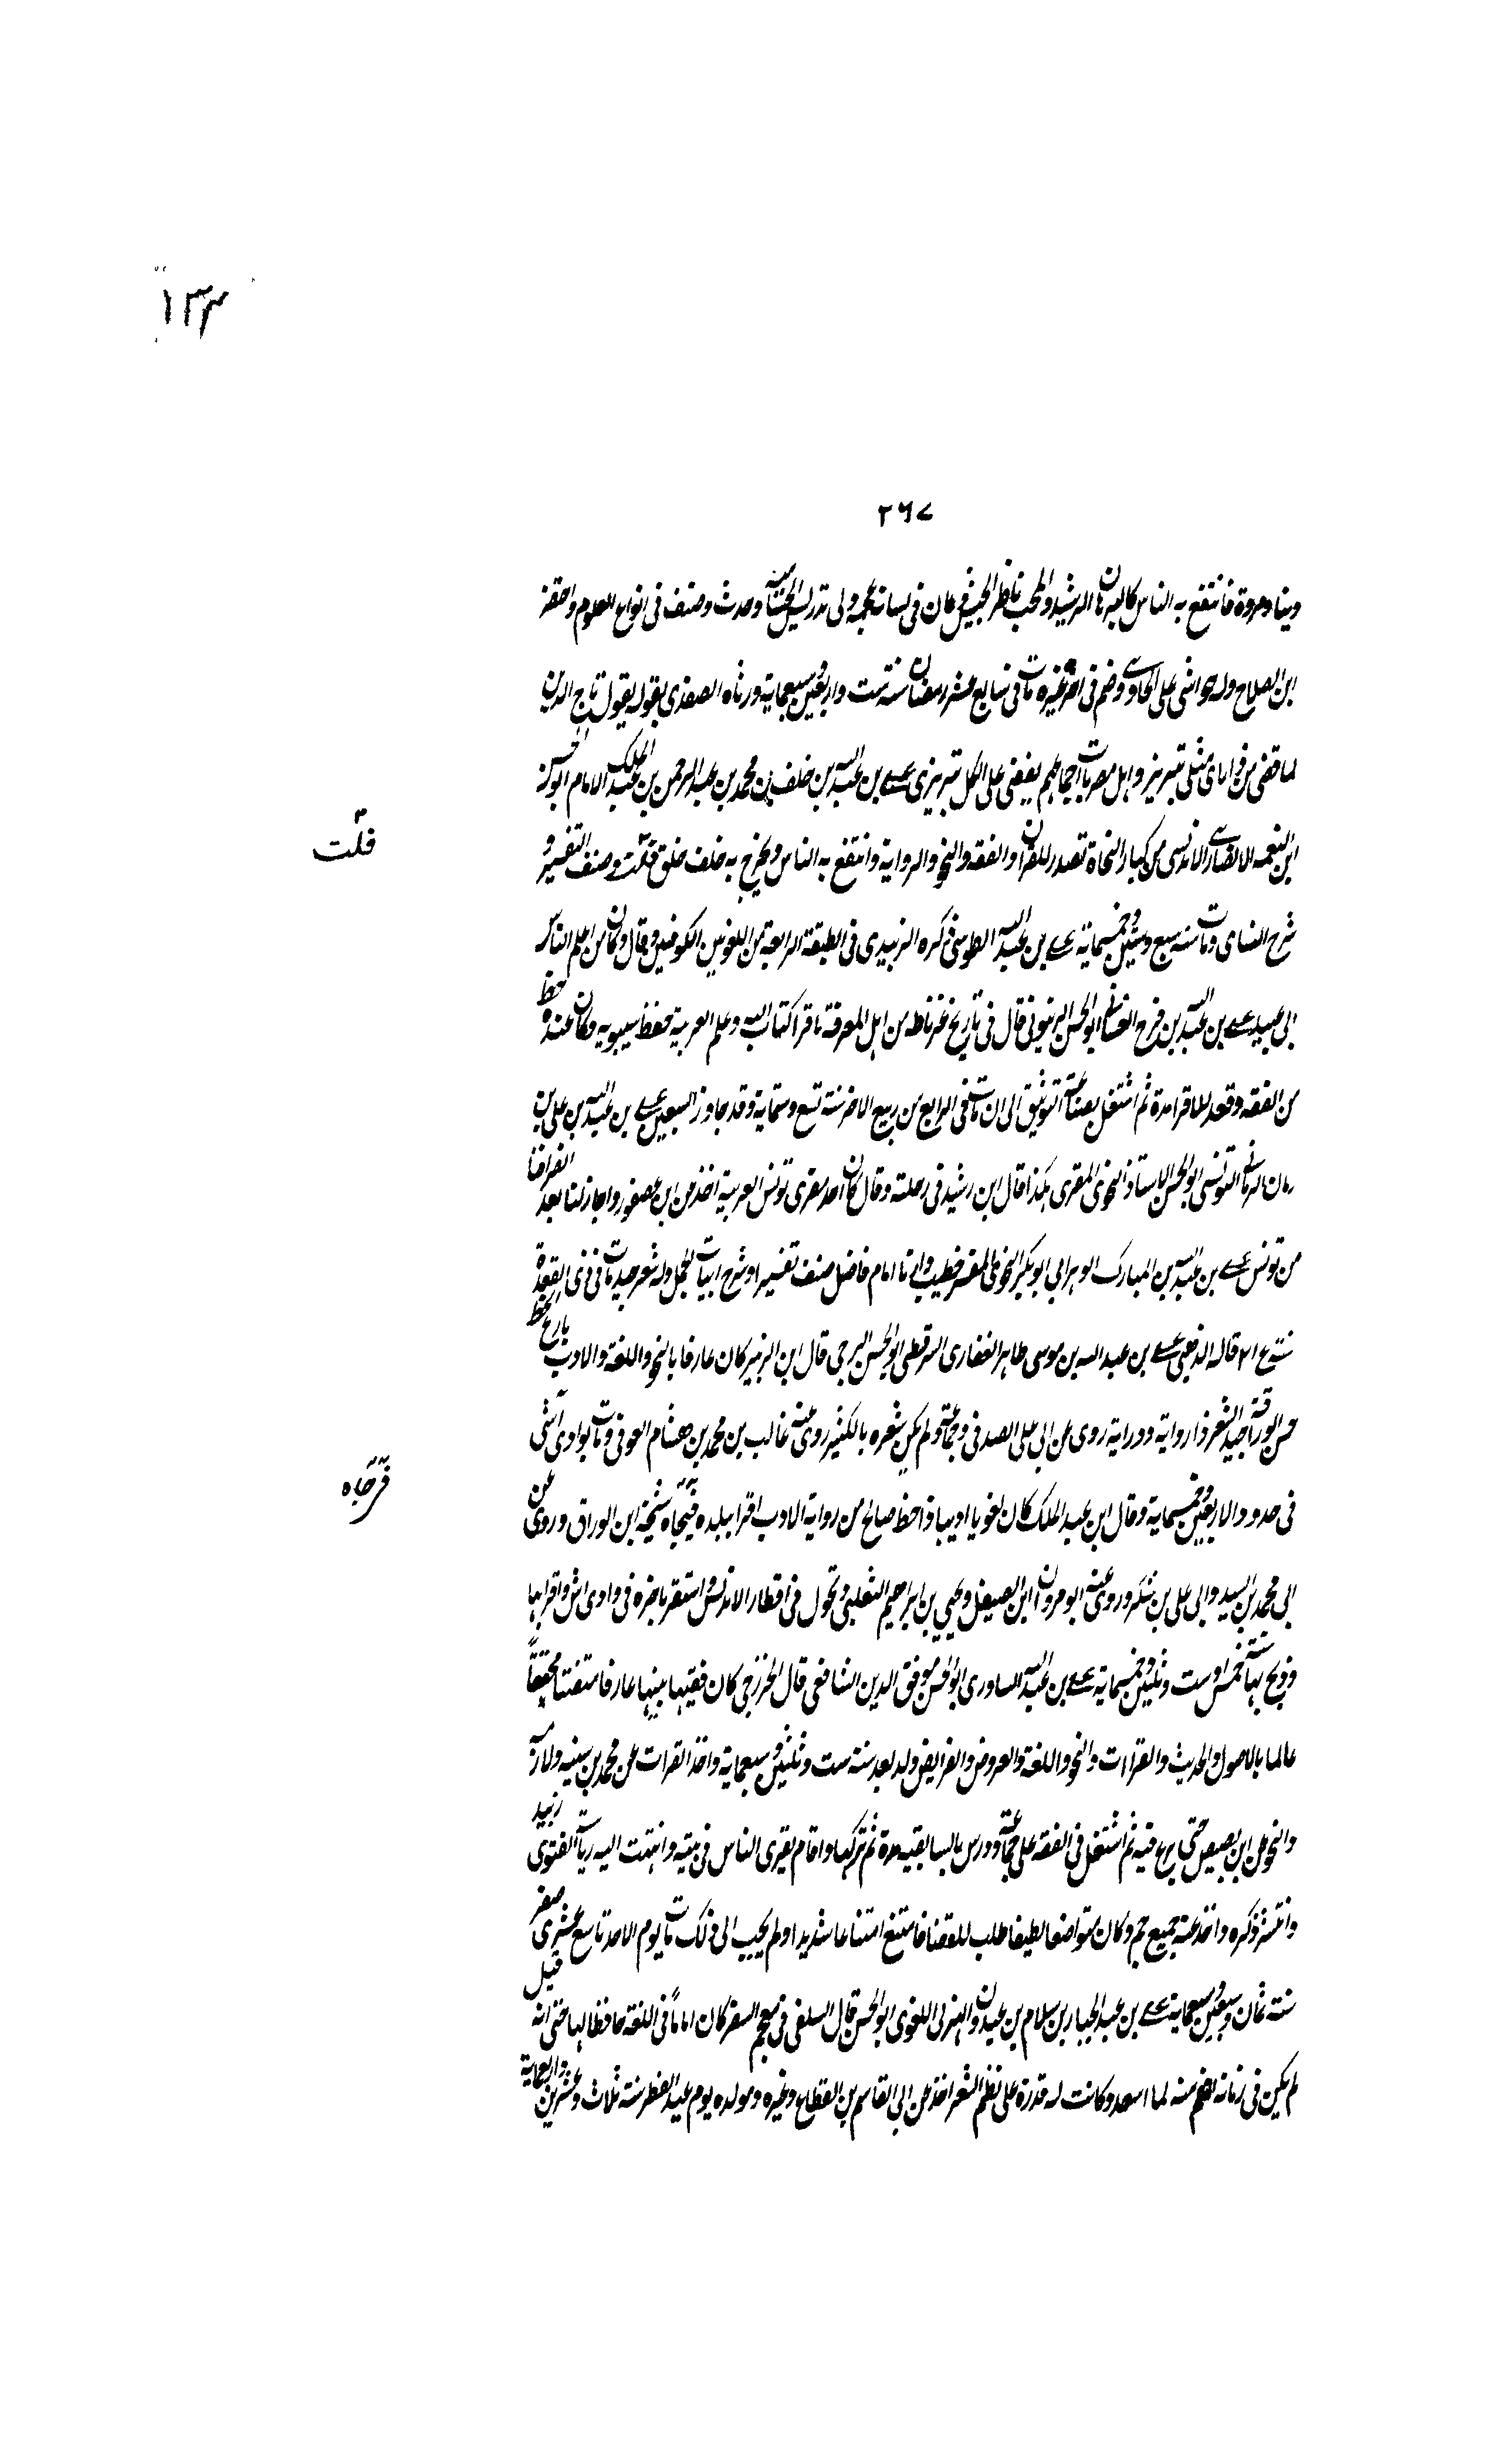 ١٣٣
٢٦٧
دينا ومروة فانتفع به الناس كالبرهان الرشيدي والمحب ناظر الجيش وكان في لسانه عجمة ولي تدريس الحسامية وحدث وصنف في انواع العلوم واختصر
ابن الصلاح وله حواشي على الحاوي وضم في آخر عمره مات في سابع عشر رمضان سنة ست واربعين وسبعماية ورثاه الصفدي بقوله يقول تاج الدين
لما قضى من ذا راى مثلي تبريز واهل مصر بات اجماعهم يقضي على الكل تبريزي علي بن عبد الله بن خلف بن محمد بن عبد الرحمن بن عبد الملك الامام ابو الحسن
ابن النعمه الانصاري الاندلسي من كبار النحاة تصدر للقران والفقه والنحو والرواية وانتفع به الناس وتخرج به خلف خلق قلت وصنف التفسير و
قلت
شرح النساي ومات سنة سبع وستين وخمسماية علي بن عبد الله الطوسي ذكره الزبيدي في الطبقة الرابعة من اللغويين الكوفيين وقال وكان من اعلم الناس
ابي عبيد علي بن عبد الله بن فرج الغساني ابو الحسن الزيتوني قال في تاريخ غرناطه من اهل المعرفة باقرا كتاب الله وعلم العربية حفظ سيبويه وكان عنده حظ
من الفقه وقعد للاقرا مدة ثم اشتغل بصناعة التوثيق الى ان مات في الرابع من ربيع الاخر سنة تسع وستماية وقد جاوز السبعين علي بن عبد الله بن علي بن
رمان الرماني التونسي ابو الحسن الاستاذ النحوي المقري هكذا قال ابن رشيد في رحلته وقال كان احد مقري تونس العربية اخذ من ابن عصفور واجاز لنا بعد انفرافنا
من تونس علي بن عبد الله بن المبارك الوهراني ابو بكر النحوي المفسر خطيب داريا امام فاضل صنف تفسيرا وشرح ابيات الجمل وله شعر جيد مات في ذي القعدة
قاله الذهبي علي بن عبد الله بن موسى طاهر الغفاري السرقسطي ابو الحسن البرجي قال ابن الزبير كان عارفا بالنحو واللغة والادب بارع الخط
حسن الوراقة جيد الشعر ذا رواية ودراية روى عن ابي علي الصدفي وجماعة ولم يكن شعره بالكثير روى عنه غالب بن محمد بن هشام العوفي ومات بوادي آشي
في حدود الاربعين وخمسماية وقال ابن عبد الملك كان لغويا اديبا ذا حظ صالح من رواية الادب اقرا ببلده شيخه ابن الوراق وروى عن
ابي محمد بن السيد وابي علي بن سكره وروى عنه ابو مروان ابن الصيقل ويحيى بن ابراهيم الثعلبي وتحول في اقطار الاندلس واستقر باخره في وادي اش واقرا بها
وتوفي بها سنة خمس او ست وثلثين وخمسماية علي بن عبد الله الساوري ابو الحسن موفق الدين الشافعي قال الخزرجي كان فقيها نبيها عارفا متفننا محققاً
عالما بالاصول والحديث والقراات والنحو واللغة والعروض والفرايض ولد بعد سنة ست وثلثين وسبعماية واخذ القرات عن محمد بن سينه ولازمه
والنحو عن ابن بصيص حتى برع فيه ثم اشتغل في الفقه على جماعة ودرس بالسابقيه مدة ثم تركها واقام يقري الناس في بيته وانتهت اليه رياسة الفتوى زبيد
وانتشر ذكره واخذ عنه جميع جم وكان متواضعا لطيفا طلب للقضا فامتنع امتناعا شديدا ولم يجب الى ذلك مات يوم الاحد تاسع عشري صفر
سنة ثمان وسبعين وسبعماية علي بن عبد الجبار بن سلام بن عيدون الهذلي اللغوي ابو الحسن قال السلفي في معجم السفر كان اماماً في اللغة حافظا لها حتى انه قيل
لم يكن في زمانه افهم منه لما اسعد وكانت له قدرة على نظم الشعر اخذ عن ابي القاسم بن القطاع وغيره ومولده يوم عيد الفطر سنة ثلاث وعشرين واربعماية